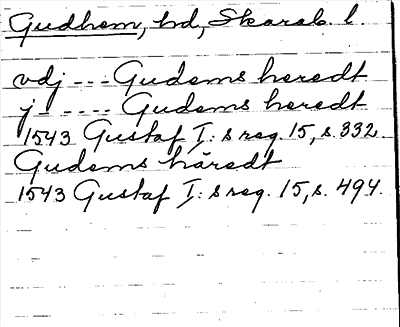 Gudhem, hd, Skarab. l.
vdj --- Gudems heredt
j- ---- Gudems heredt
1543 Gustaf I: s reg. 15, s. 332.
Gudems häredt
1543 Gustaf I: s reg. 15, s. 494.